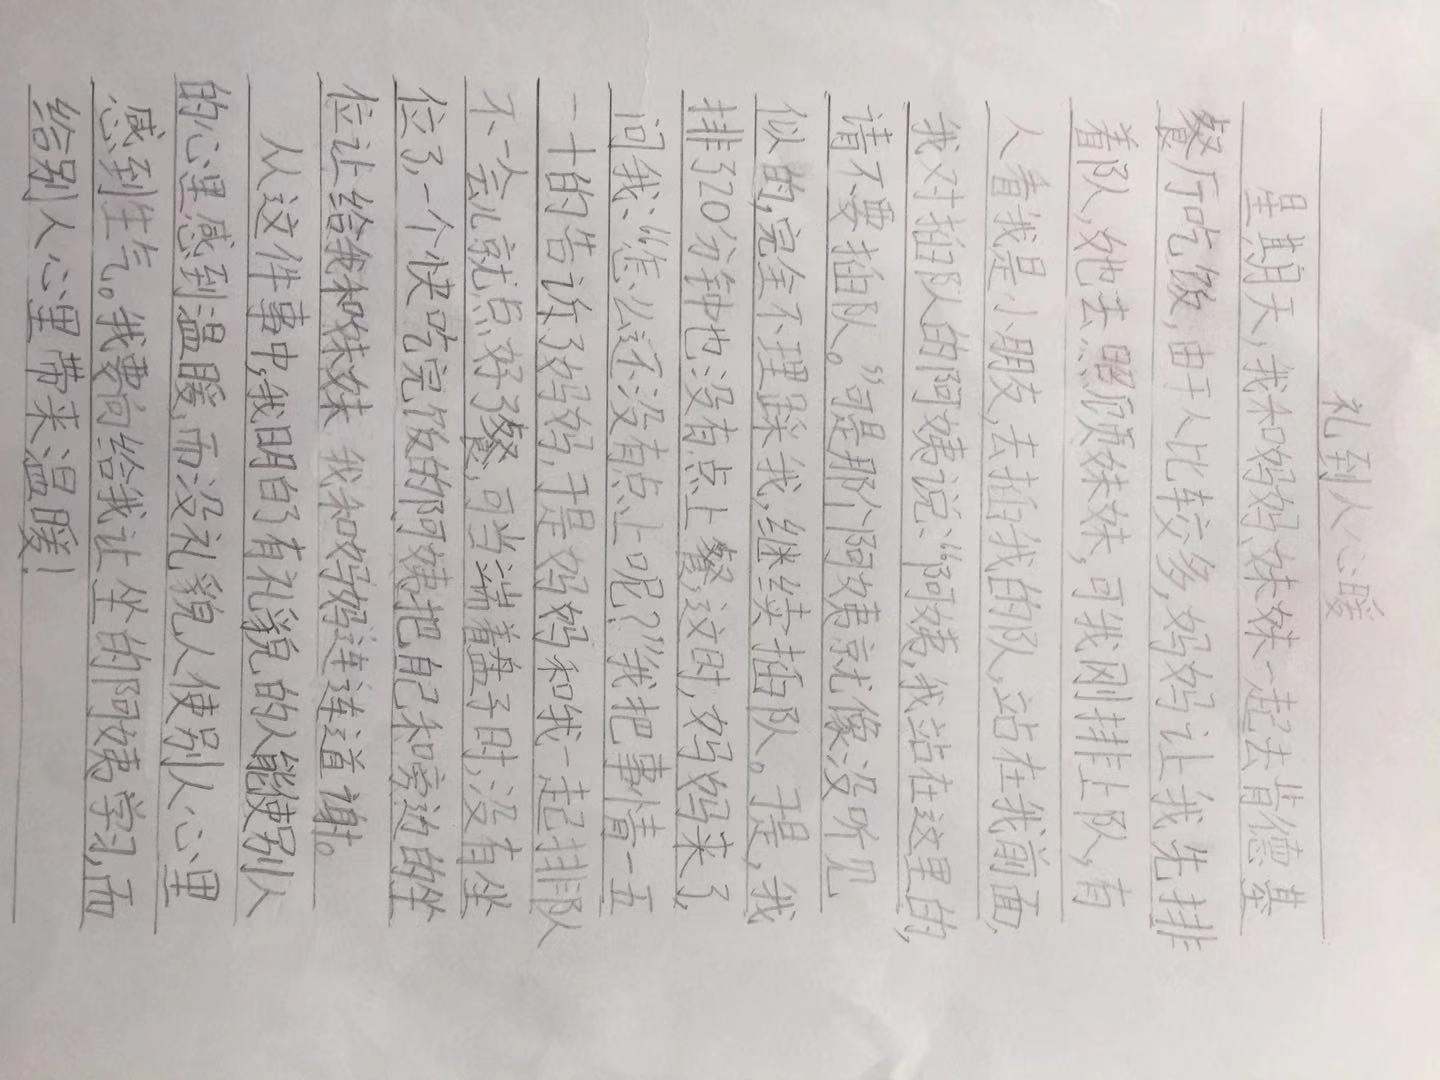 礼到人心暖
星期天,我和妈妈妹妹一起去肯德基
餐厅吃饭,由于人比较多,妈妈让我先排
着队,她去照顾妹妹,可我刚排上队,有
人看我是小朋友,去插我的队,站在我前面,
我对插队的阿姨说:“阿姨,我站在这里的,
请不要插队。”可是那个阿姨就像没听见
似的,完全不理踩我,继续插队。于是,我
排了20分钟也没有点上餐,这时,妈妈来了,
问我:“怎么还没有点上呢?”我把事情一五
一十的告诉了妈妈,于是妈妈和我一起排队
不一会儿就点好了餐,可当端着盘子时,没有坐
位了,一个快吃完饭的阿姨把自己和旁边的坐
位让给我和妹妹 我和妈妈连连道谢。
从这件事中,我明白了有礼貌的人能使别人
的心里感到温暖,而没礼貌人使别人心里
感到生气。我要向给我让坐的阿姨学习,而
给别人心里带来温暖!